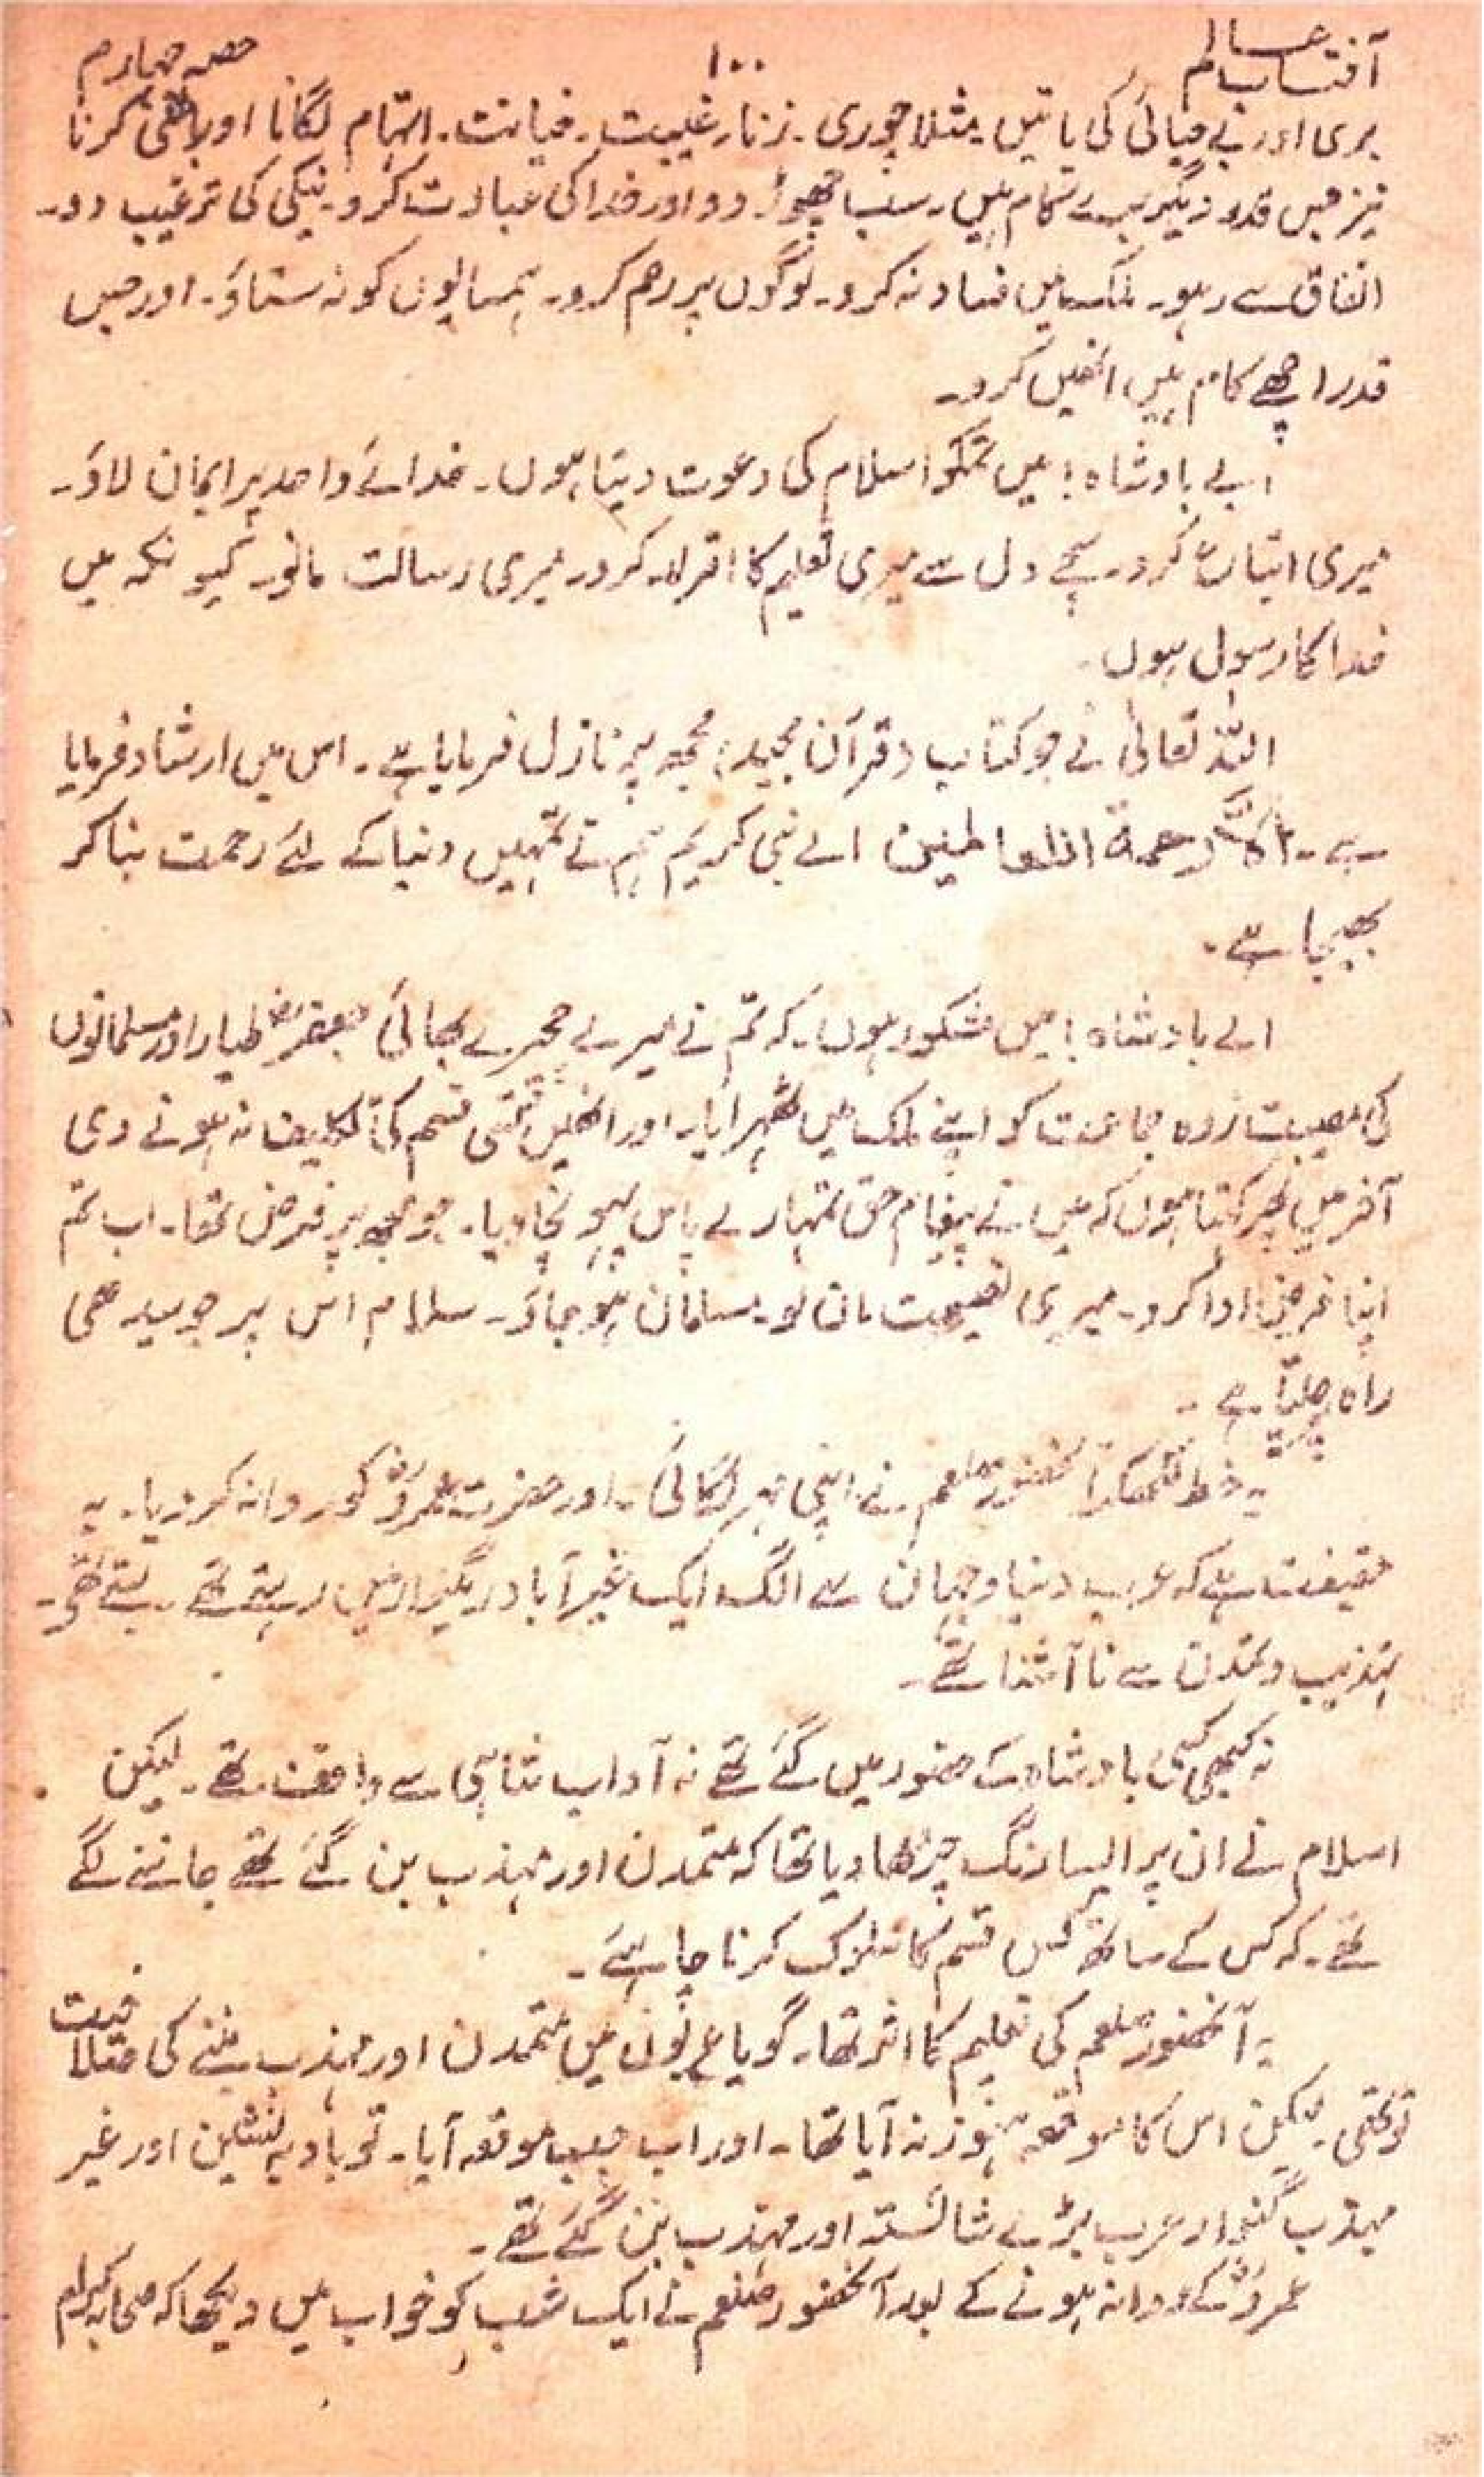 آفتاب عالم ۱۰۰ حصہ چہارم
بری اور بے حیائی کی باتیں مثلا چوری۔ زنا۔ غیبت۔ خیانت۔ اتہام لگانا اور کرنا
نیز جس قدر دیگر برے کام ہیں۔ سب چھوڑ دو اور خدا کی عبادت کرو۔ نیکی کی ترغیب دو۔
اتفاق سے رہو۔ ملک میں فساد نہ کرو۔ لوگوں پر رحم کرو۔ ہمسایوں کو نہ ستاؤ۔ اور جس
قدر اچھے کام ہیں انھیں کرو۔
اے بادشاہ! میں تمکو اسلام کی دعوت دیتا ہوں۔ خدائے واحد پر ایمان لاؤ۔
میری اتباع کرو۔ سچے دل سے میری تعلیم کا اقرار کرو۔ میری رسالت مانو۔ کیونکہ میں
خدا کا رسول ہوں۔
اللہ تعالیٰ نے جو کتاب (قرآن مجید) مجھ پر نازل فرمایا ہے۔ اس میں ارشاد فرمایا
ہے۔ رحمة اے نبی کریم ہم نے تمہیں دنیا کے لئے رحمت بنا کر
بھیجا ہے۔
اے بادشاہ! میں مشکور ہوں۔ کہ تم نے میرے چچیرے بھائی جعفرؓ طیار اور مسلمانوں
کی مصیبت زدہ جماعت کو اپنے ملک میں ٹھہرایا۔ اور انھیں کسی قسم کی تکلیف نہ ہونے دی
آخر میں پھر کہتا ہوں کہ میں نے پیغام حق تمہارے پاس پہونچا دیا۔ جو مجھ پر فرض تھا۔ اب تم
اپنا فرض ادا کرو۔ میری نصیحت مان لو۔ مسلمان ہو جاؤ۔ سلام اس پر جو سیدھی
راہ چلتا ہے۔
یہ خط لکھکر آنحضور صلعم نے اپنی مہر لگائی۔ اور حضرت عمروؓ کو روانہ کر دیا۔ یہ
حقیقت ہے کہ عرب دنیا و جہان سے الگ ایک غیر آباد ریگزار میں رہتے تھے۔ بستے تھے۔
تہذیب و تمدن سے نا آشنا تھے۔
نہ کبھی کسی بادشاہ کے حضور میں گئے تھے نہ آداب شاہی سے واقف تھے۔ لیکن
اسلام نے ان پر ایسا رنگ چڑھا دیا تھا کہ متمدن اور مہذب بن گئے تھے جاننے لگے
تھے۔ کہ کس کے ساتھ کس قسم کا سلوک کرنا چاہئے۔
یہ آنحضور صلعم کی تعلیم کا اثر تھا۔ گویا عربوں میں متمدن اور مہذب بننے کی صلاحیت
تو تھی۔ لیکن اس کا موقعہ ہنوز نہ آیا تھا۔ اور اب جب موقعہ آیا۔ تو بادیہ نشین اور غیر
مہذب گنوار عرب بڑے شائستہ اور مہذب بن گئے تھے۔
عمروؓ کے روانہ ہونے کے بعد آنحضور صلعم نے ایک شب کو خواب میں دیکھا کہ صحابہ کرام